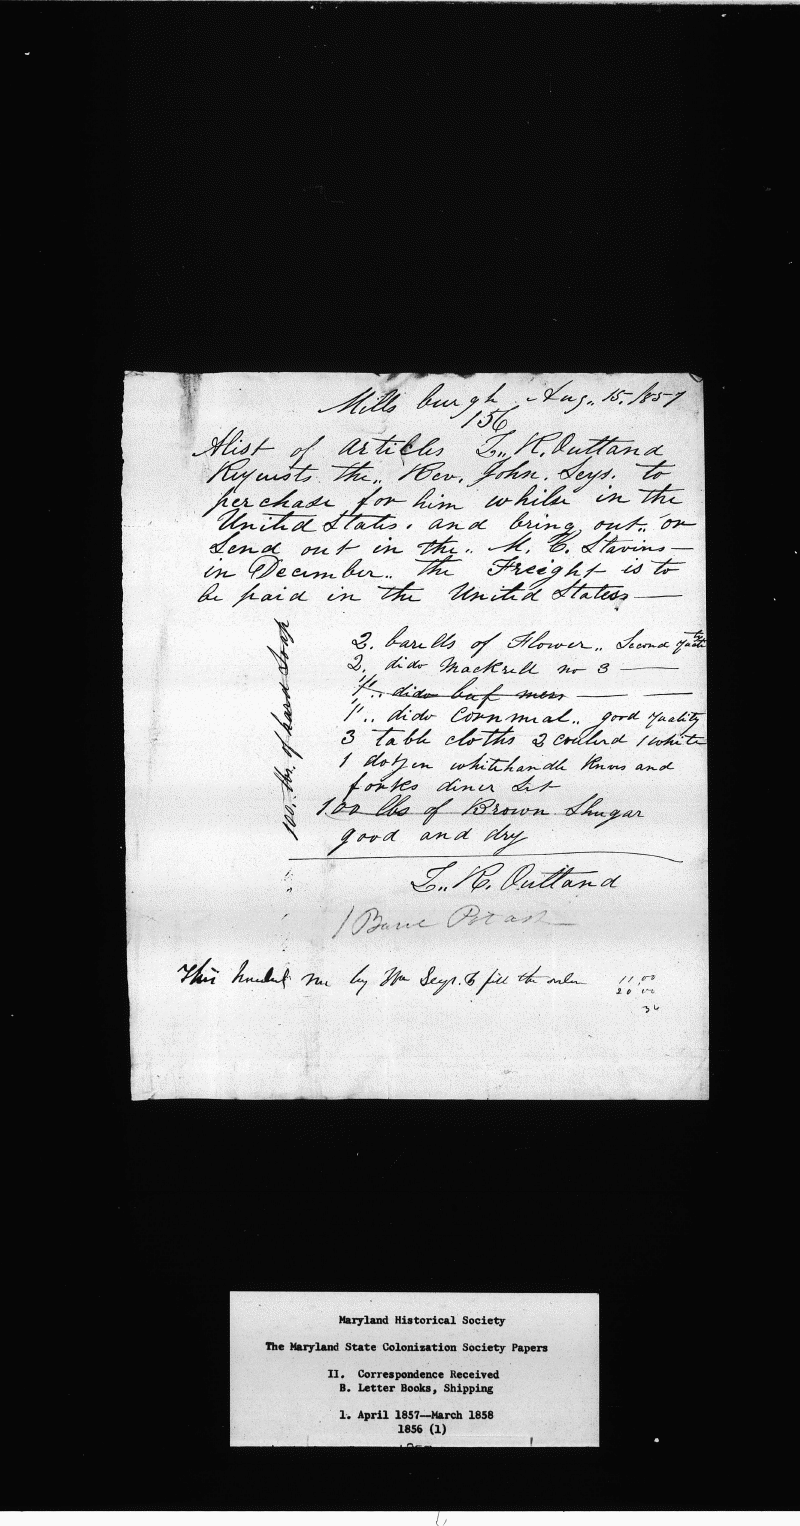 Mills burgh Aug,, 15. 1857
156
A list of articles Z,, R. Outland
Requests the,, Rev. John. Seys. to
perchase for him whilse in the
United States. and bring out,, or
Send out in the,, M. C. Stavins—
in December,, the Freight is to
be paid in the United Statess—
2. barells of Flower,, Second
2. dido Mackrell no 3 —
1,, dido beef mess — —
1,, dido Cornmeal,, good quality
3 table cloths 2 coulerd 1 white
1 dozen whitehandle knives and
forks diner Set
100 lbs of Brown Shugar
good and dry
100. lbs. of hard Soap
Z,, R. Outland
1 Barre Potash
by Seys. to fill the order 11.00
20.00
Maryland Historical Society
The Maryland State Colonization Society Papers
II. Correspondence Received
B. Letter Books, Shipping
1. April 1857--March 1858
1856 (1)